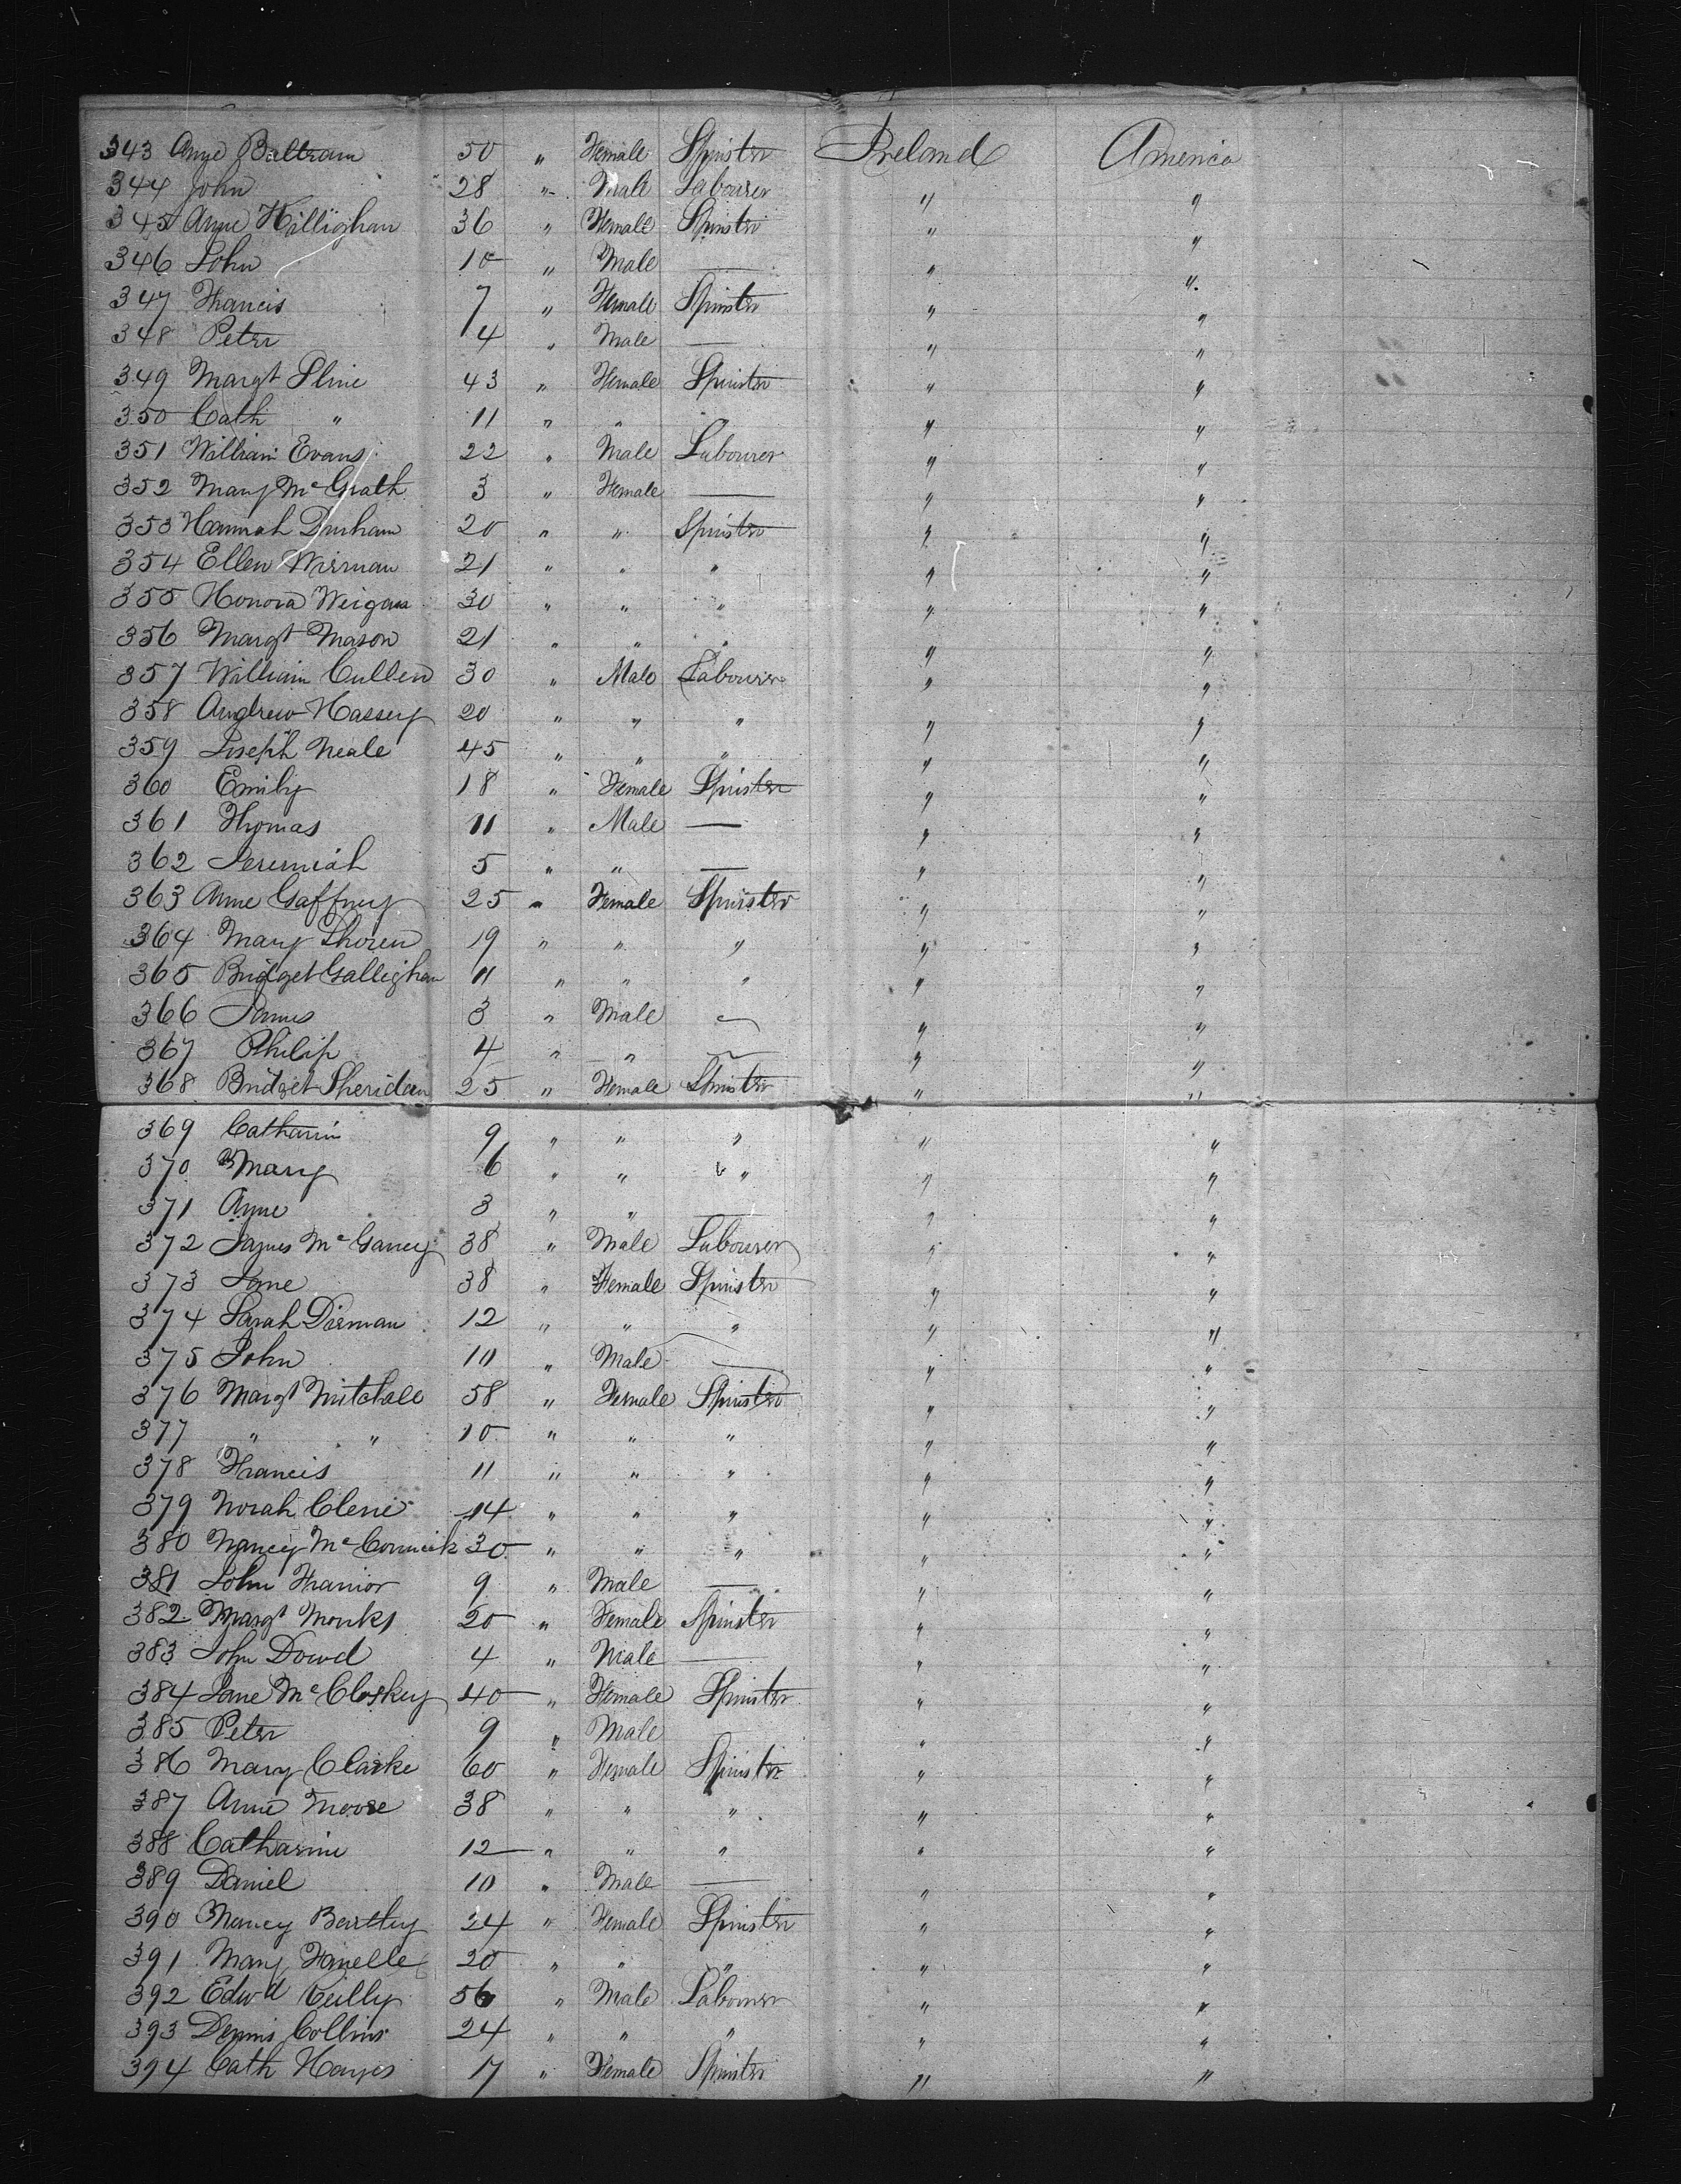 343 Anne Baltram 50 " Female Spinster Ireland America
344 John 28 " Male Labourer " "
345 Anne Hillighan 36 " Female Spinster " "
346 John 10 " Male — " "
347 Francis 7 " Female Spinster " "
348 Peter 4 " Male — " "
349 Margt Sline 43 " Female Spinster " "
350 Cath " 11 " " " " "
351 William Evans 22 " Male Labourer " "
352 Mary McGrath 3 " Female — " "
353 Hannah Durham 20 " " Spinster " "
354 Ellen Wisman 21 " " " " "
355 Honora Weigan 30 " " " " "
356 Margt Mason 21 " " " " "
357 William Cullen 30 " Male Labourer " "
358 Andrew Hassey 20 " " " " "
359 Joseph Neale 45 " " " " "
360 Emily 18 " Female Spinster " "
361 Thomas 11 " Male — " "
362 Jeremiah 5 " " — " "
363 Anne Gaffney 25 " Female Spinster " "
364 Mary Thoren 19 " " " " "
365 Bridget Gallighan 11 " " " " "
366 James 3 " Male — " "
367 Philip 4 " " — " "
368 Bridget Sheridan 25 " Female Spinster " "
369 Catharin 9 " " " " "
370 Mary 6 " " " " "
371 Anne 3 " " — " "
372 James McGaney 38 " Male Labourer " "
373 Jane 38 " Female Spinster " "
374 Sarah Disman 12 " " " " "
375 John 10 " Male — " "
376 Margt Mitchell 58 " Female Spinster " "
377 " " 10 " " " " "
378 Francis 11 " " " " "
379 Norah Clene 14 " " " " "
380 Nancy McCormick 30 " " " " "
381 John Trainor 9 " Male — " "
382 Margt Monks 20 " Female Spinster " "
383 John Dowd 4 " Male — " "
384 Jane McCloskey 40 " Female Spinster " "
385 Peter 9 " Male " "
386 Mary Clarke 60 " Female Spinster " "
387 Anne Moore 38 " " " " "
388 Catharine 12 " " " " "
389 Daniel 10 " Male — " "
390 Nancy Bartley 24 " Female Spinster " "
391 Mary Fanelle 20 " " " " "
392 Edwd Reilly 56 " Male Labourer " "
393 Dennis Collins 24 " " " " "
394 Cath Hayes 17 " Female Spinster " "